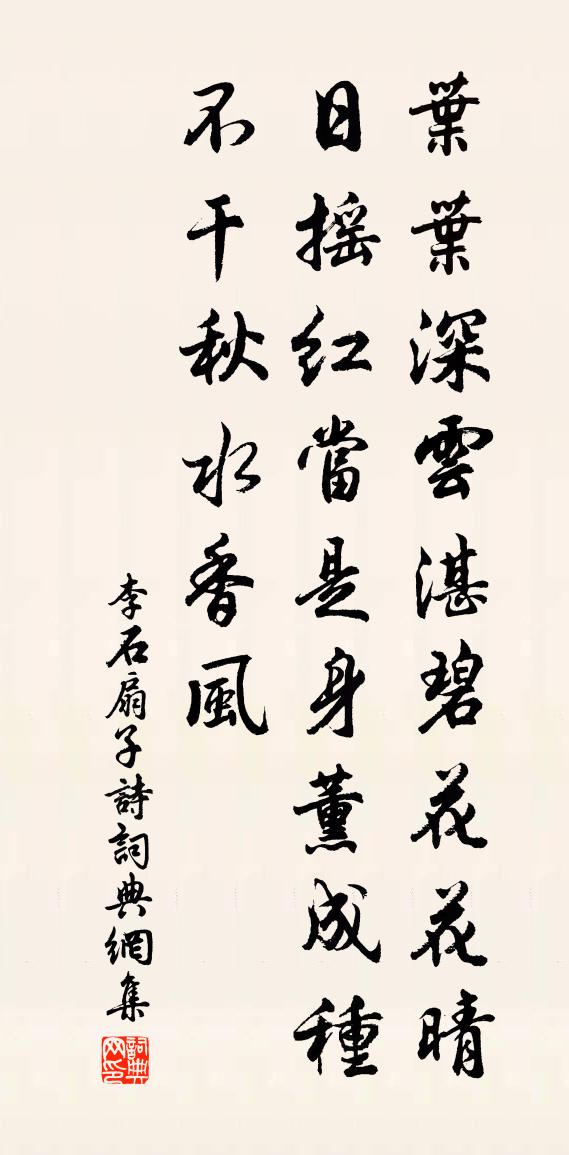 葉葉深雲湛碧花花晴
日搖紅當是身薰成種
不干秋水香風
李石扇子詩詞典網集
詞典网印